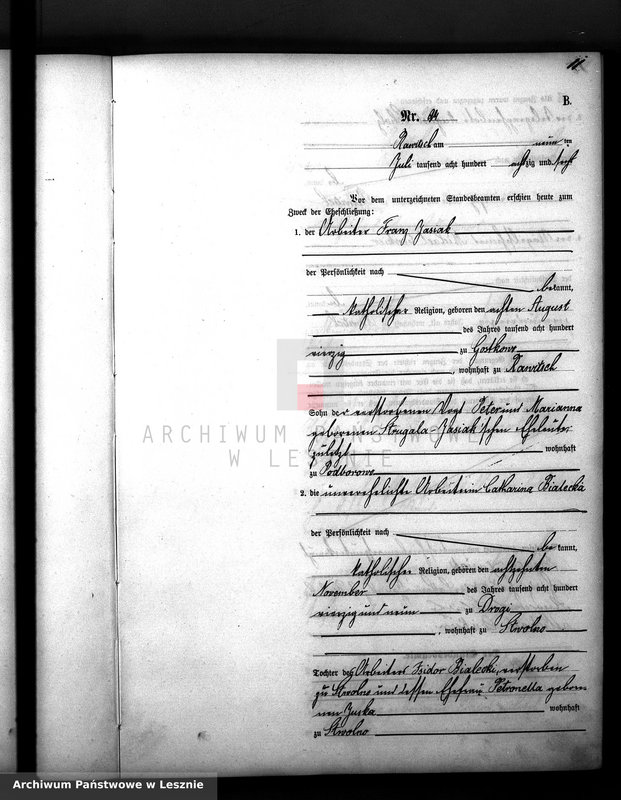 11
B.
Nr.
Rawitsch am neun ten
Juli tausend acht hundert achtzig und sechs
Vor dem unterzeichneten Standesbeamten erschien heute zum
Zweck der Eheschließung:
1. der Arbeiter Franz Jasiak
der Persönlichkeit nach
bekannt,
katholischer Religion, geboren den achten August
des Jahres tausend acht hundert
vierzig zu Gostkowo
, wohnhaft zu Rawitsch
Sohn der verstorbenen Vogt Peter und Marianna
geborenen Strugala-Jasiak'schen Eheleute,
zuletzt wohnhaft
zu Podborowo
2. die unverehelichte Arbeiterin Catharina Bialecka
der Persönlichkeit nach
bekannt,
katholischer Religion, geboren den achtzehnten
November des Jahres tausend acht hundert
vierzig und neun zu Drogi
, wohnhaft zu Stwolno
Tochter des Arbeiters Isidor Bialecki, verstorben
zu Stwolno und dessen Ehefrau Petronella gebore-
nen Juska wohnhaft
zu Stwolno
ARCHIWUM PAŃSTWOWE
W LESZNIE
Archiwum Państwowe w Lesznie